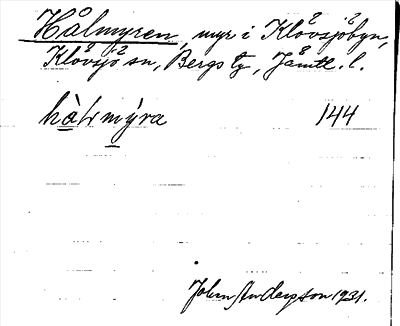 Hålmyren, myr i Klövsjöbyn,
Klövsjö sn, Bergs tg, Jämtl. l.
mýra 144
John Anderson 1931.